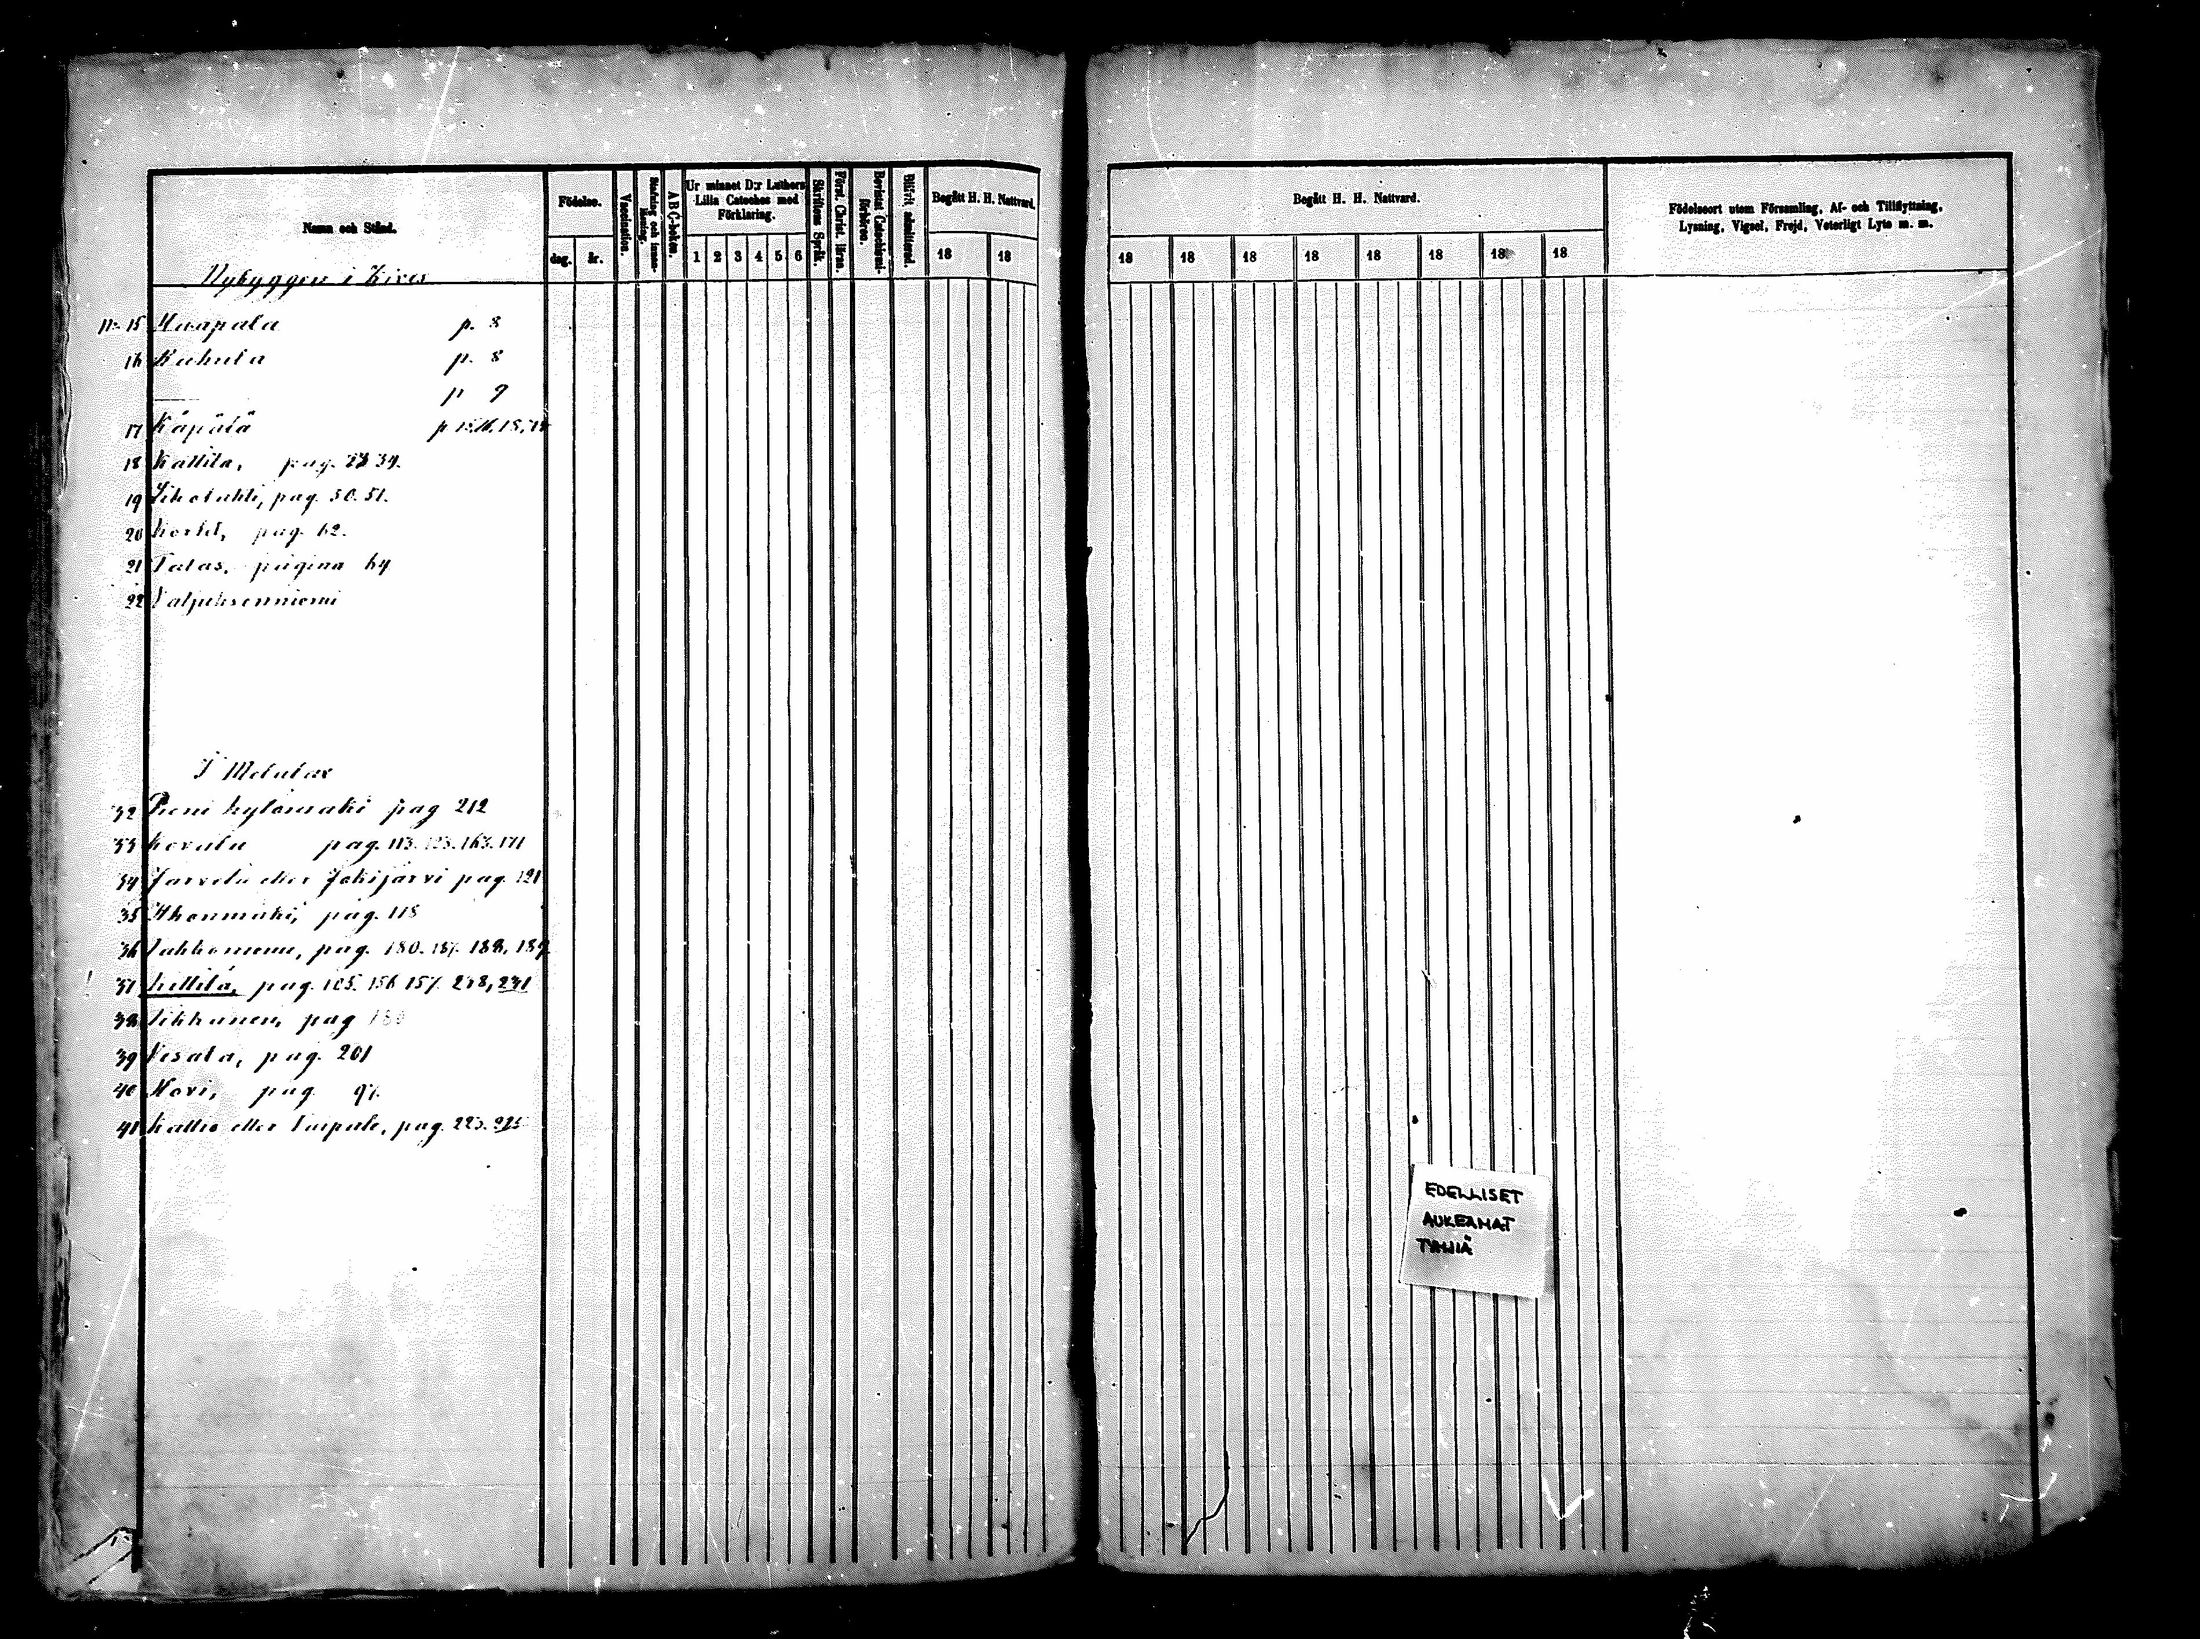 Namn och Stånd.
Födelse.
dag. år.
Vaccination.
Stafning och innan-läsning.
A B C-boken.
Ur minnet D:r Luthers Lilla Cateches med Förklaring.
1 2 3 4 5 6
Skriftens Språk.
Först. Christ. läran.
Bevistat Catechismi-förhören.
Blifvit admitterad.
Begått H. H. Nattvard.
18 18
Begått H. H. Nattvard.
18 18 18 18 18 18 18 18
Födelseort utom Församling, Af- och Tillflyttning,
Lysning, Vigsel, Frejd, Veterligt Lyte m. m.
Nybyggen i Kives
No 15 Haapala p. 8
16 Kahula p. 8
p 9
17 Käpälä p
18 Kattila, pag.
19 Likolahti, pag. 50. 51.
20 pag. 62.
21 Talas, pagina 64
22 Valpuksenniemi
I Melalax
32 Pieni kylänmäki pag 212
33 Kovala pag. 113. 123. 163. 171
34 Jarvela eller Jokijärvi pag. 121
35 Ahonmäki, pag. 118
36 Jahkoniemi, pag. 180. 187. 188, 189
! 37 Kettilä, pag. 105. 156 157. 238, 231
38 Tikkanen, pag 180
39 Vesala, pag. 201
40 Hovi, pag. 97.
41 Kallio eller Taipale, pag. 223. 225
EDELLISET
AUKEAMAT
TYHJIÄ